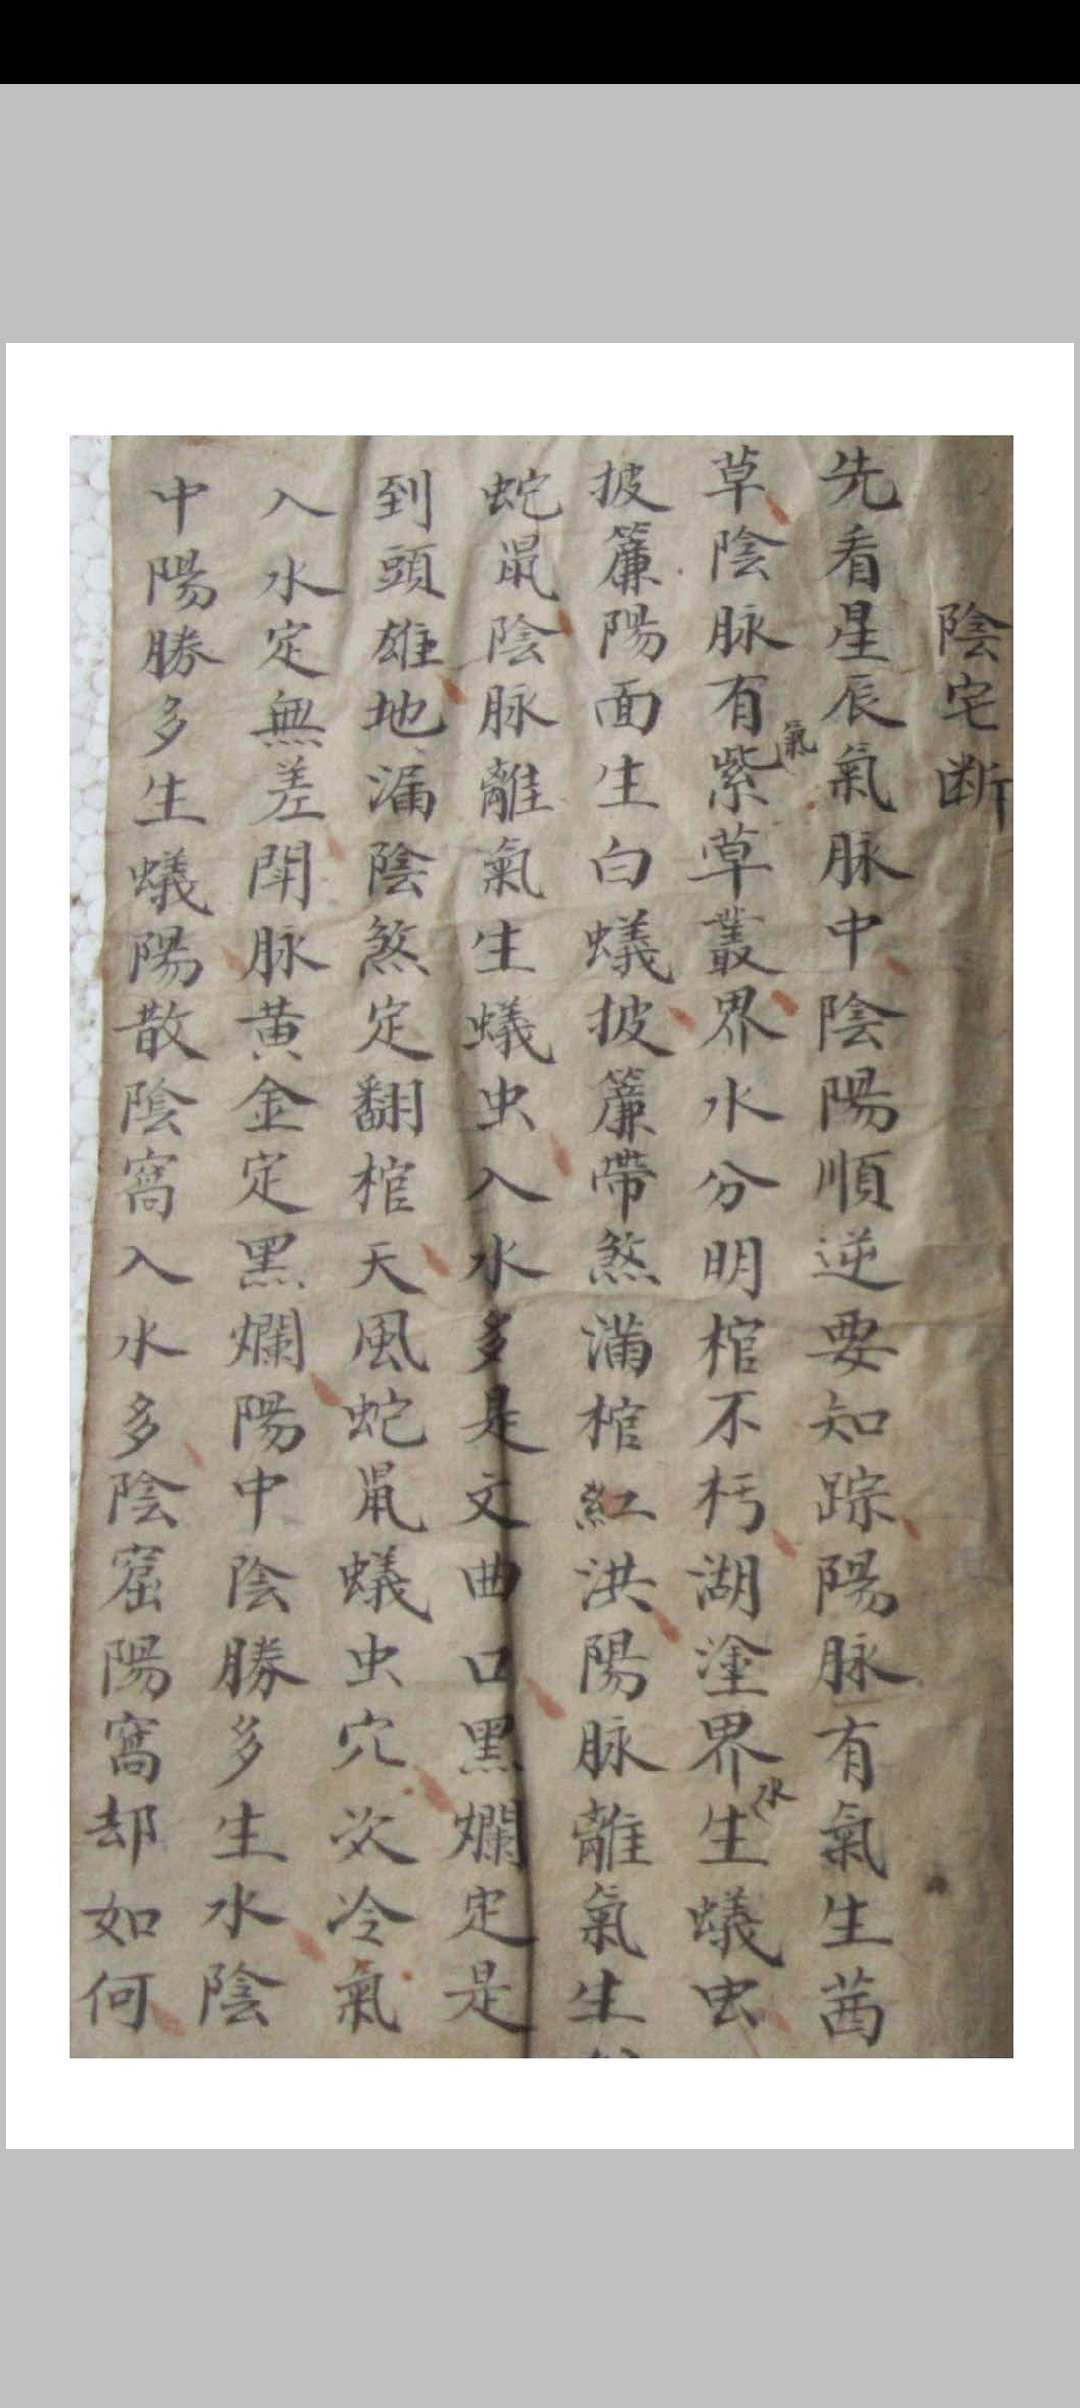 陰宅断
先看星辰氣脉中陰陽順逆要知踪陽脉有氣生茜
草陰脉有氣紫草叢界水分明棺不朽湖塗界水生蟻虫
披簾陽面生白蟻披簾帶煞滿棺紅洪陽脉離氣生
蛇鼠陰脉離氣生蟻虫入水多是文曲口黑爛定是
到頭雄地漏陰煞定翻棺天風蛇鼠蟻虫穴次冷氣
入水定無差開脉黄金定黑爛陽中陰勝多生水陰
中陽勝多生蟻陽散陰窩入水多陰窟陽窩却如何